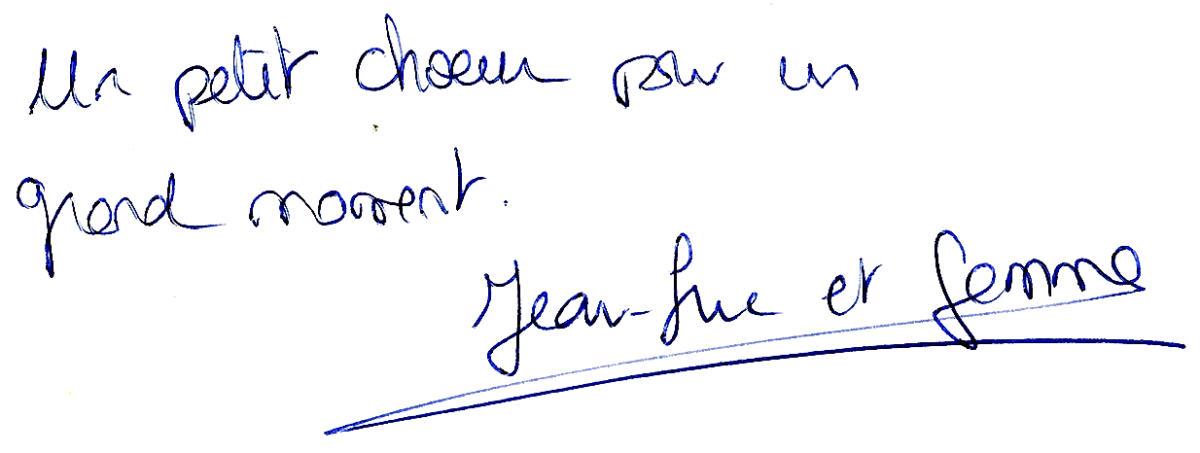 Un petit choeur pour un
grand moment.
Jean-Luc et femme